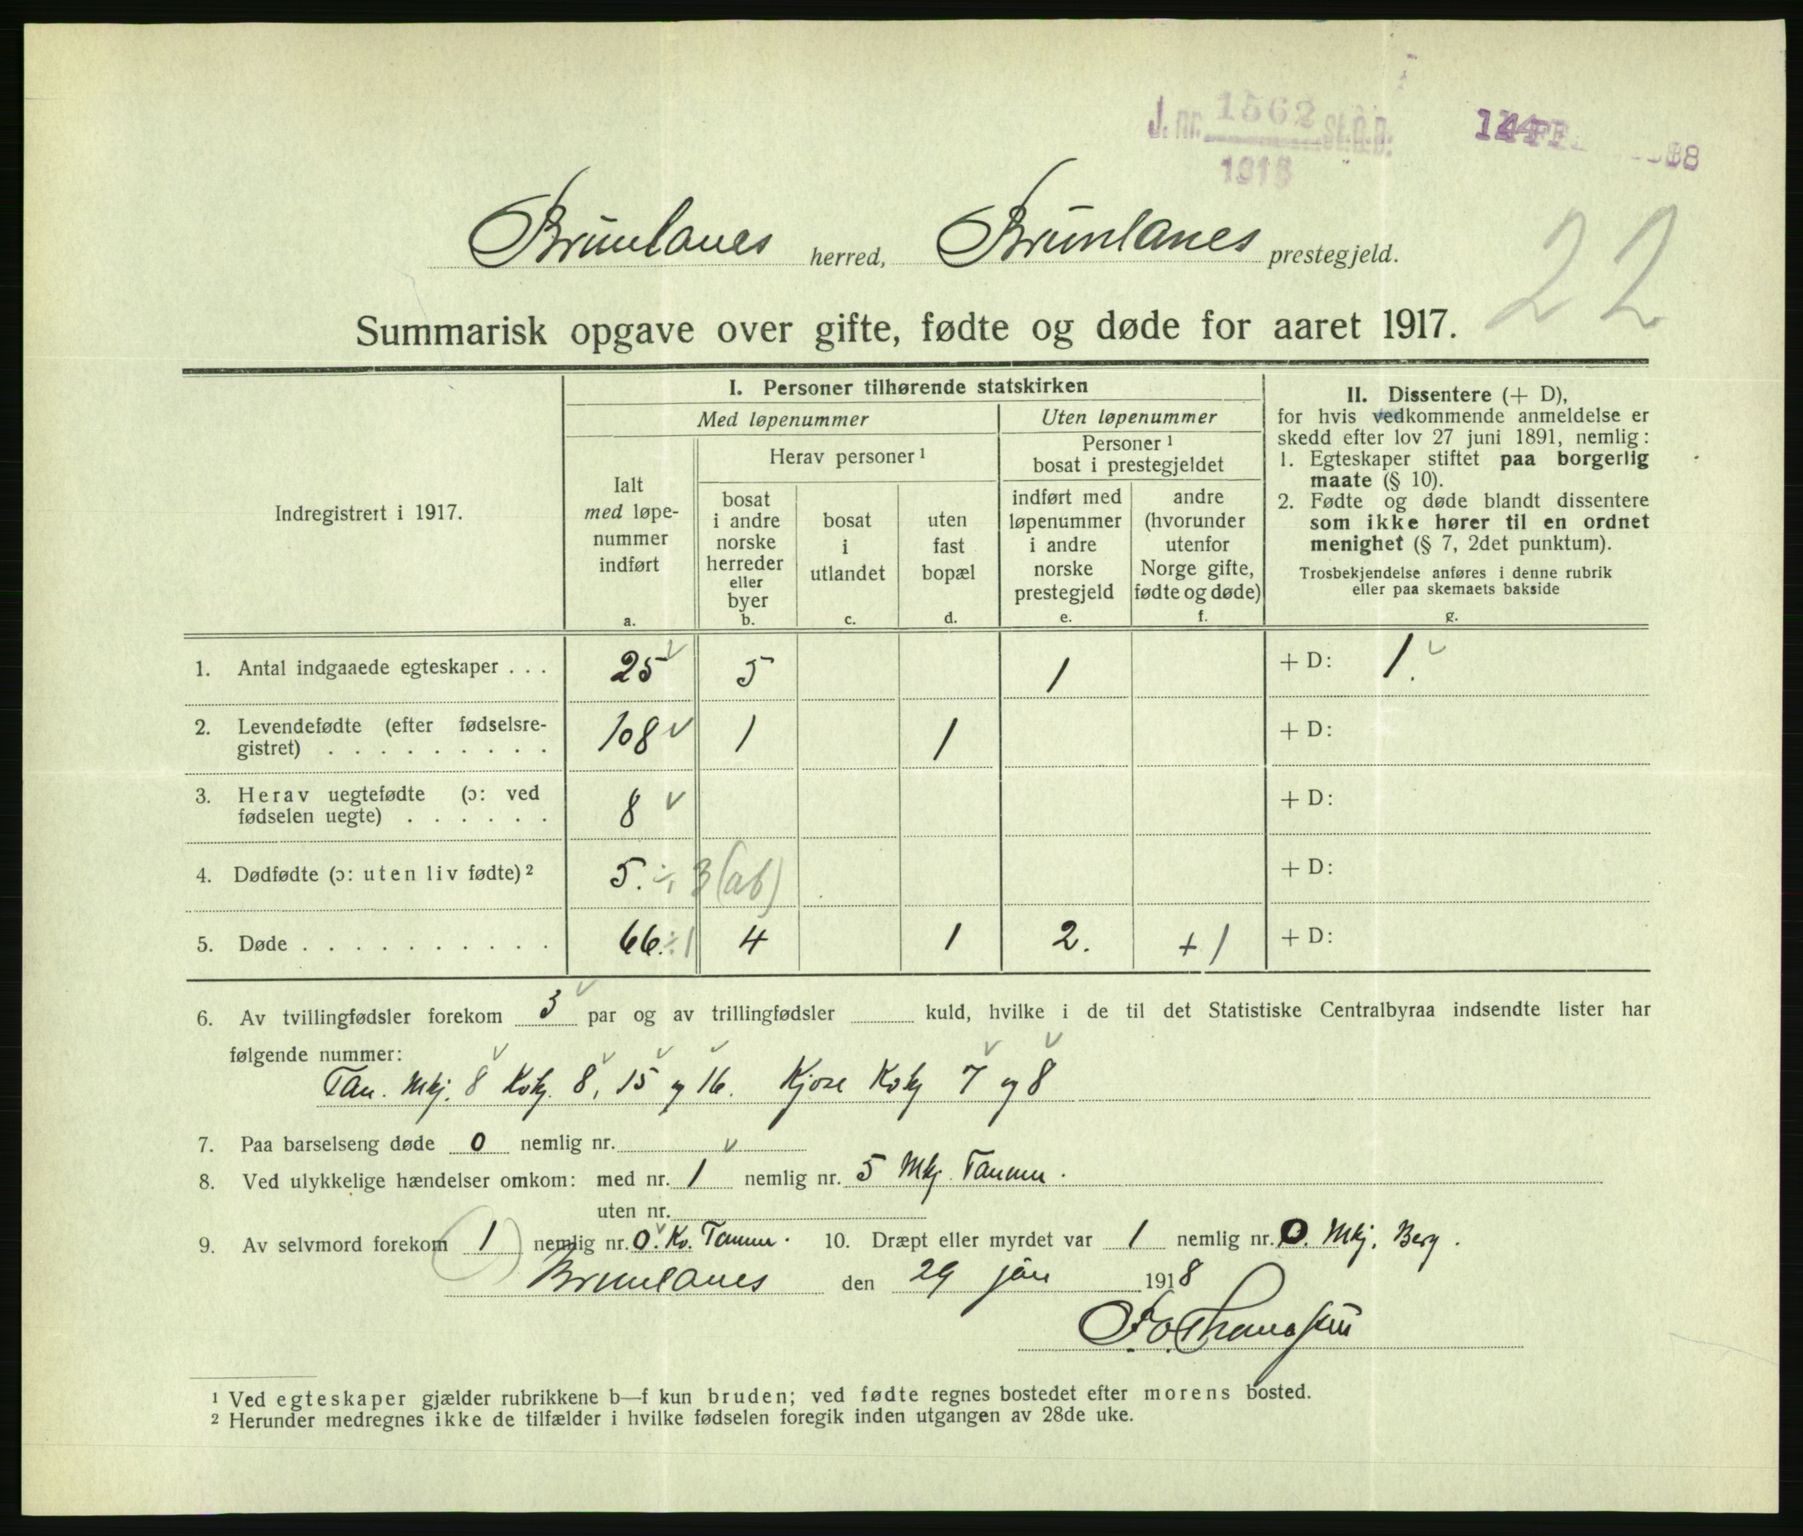 J. nr. 1562 St.C.B.
1918
22
Brunlanes herred, Brunlanes prestegjeld.
Summarisk opgave over gifte, fødte og døde for aaret 1917.
Indregistrert i 1917.
I. Personer tilhørende statskirken
Med løpenummer
Uten løpenummer
Ialt
med løpe-
nummer
indført
a.
Herav personer ¹
bosat
i andre
norske
herreder
eller
byer
b.
bosat
i
utlandet
c.
uten
fast
bopæl
d.
Personer ¹
bosat i prestegjeldet
indført med
løpenummer
i andre
norske
prestegjeld
e.
andre
(hvorunder
utenfor
Norge gifte,
fødte og døde)
f.
II. Dissentere (+ D),
for hvis vedkommende anmeldelse er
skedd efter lov 27 juni 1891, nemlig:
1. Egteskaper stiftet paa borgerlig
maate (§ 10).
2. Fødte og døde blandt dissentere
som ikke hører til en ordnet
menighet (§ 7, 2det punktum).
Trosbekjendelse anføres i denne rubrik
eller paa skemaets bakside
g.
1. Antal indgaaede egteskaper . . . 25 ✓ 5 1 + D: 1. ✓
2. Levendefødte (efter fødselsre-
gistret) . . . . . . . . . 108 ✓ 1 1 + D:
3. Herav uegtefødte (ɔ: ved
fødselen uegte) . . . . . . 8 ✓ + D:
4. Dødfødte (ɔ: uten liv fødte) ² 5. ÷ 3 (ab) + D:
5. Døde . . . . . . . . . . 66. ÷ 1 4 1 2. + 1 + D:
6. Av tvillingfødsler forekom 3 ✓ par og av trillingfødsler kuld, hvilke i de til det Statistiske Centralbyraa indsendte lister har
følgende nummer:
Tan. Mkj. 8 Kvkj. 8, 15 og 16. Kjose Kvkj 7 og 8
7. Paa barselseng døde 0 nemlig nr.
8. Ved ulykkelige hændelser omkom: med nr. 1 nemlig nr. 5 Mkj Tanum.
uten nr.
9. Av selvmord forekom 1 nemlig nr. 0. Kv. Tanum. 10. Dræpt eller myrdet var 1 nemlig nr. 0. Mkj. Berg.
Brunlanes den 29 jan 1918
¹ Ved egteskaper gjælder rubrikkene b—f kun bruden; ved fødte regnes bostedet efter morens bosted.
² Herunder medregnes ikke de tilfælder i hvilke fødselen foregik inden utgangen av 28de uke.